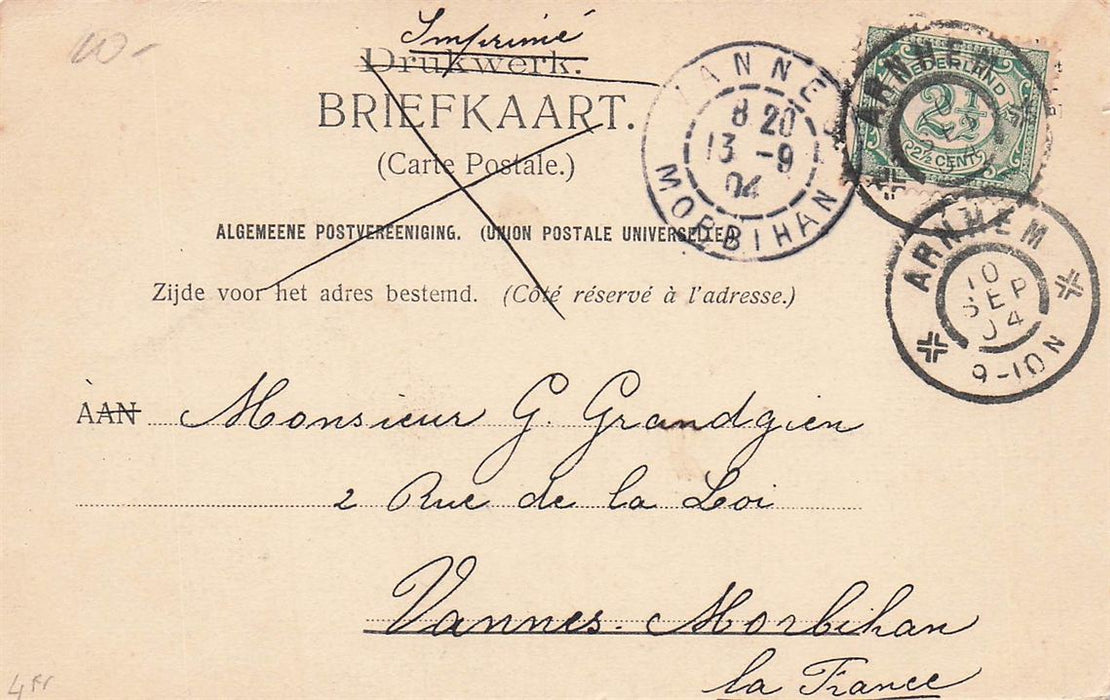 10-
Imprimé
Drukwerk.
BRIEFKAART.
(Carte Postale.)
ALGEMEENE POSTVEREENIGING. (UNION POSTALE UNIVERSELLE)
Zijde voor het adres bestemd. (Côté réservé à l'adresse.)
VANNES
8 20
13 -9
04
MORBIHAN
ARNHEM
NEDERLAND
2½
2½ CENT
ARNHEM
10
SEP
04
9-10N
AAN Monsieur G. Grandgien
2 Rue de la Loi
Vannes. Morbihan
la France
4fr